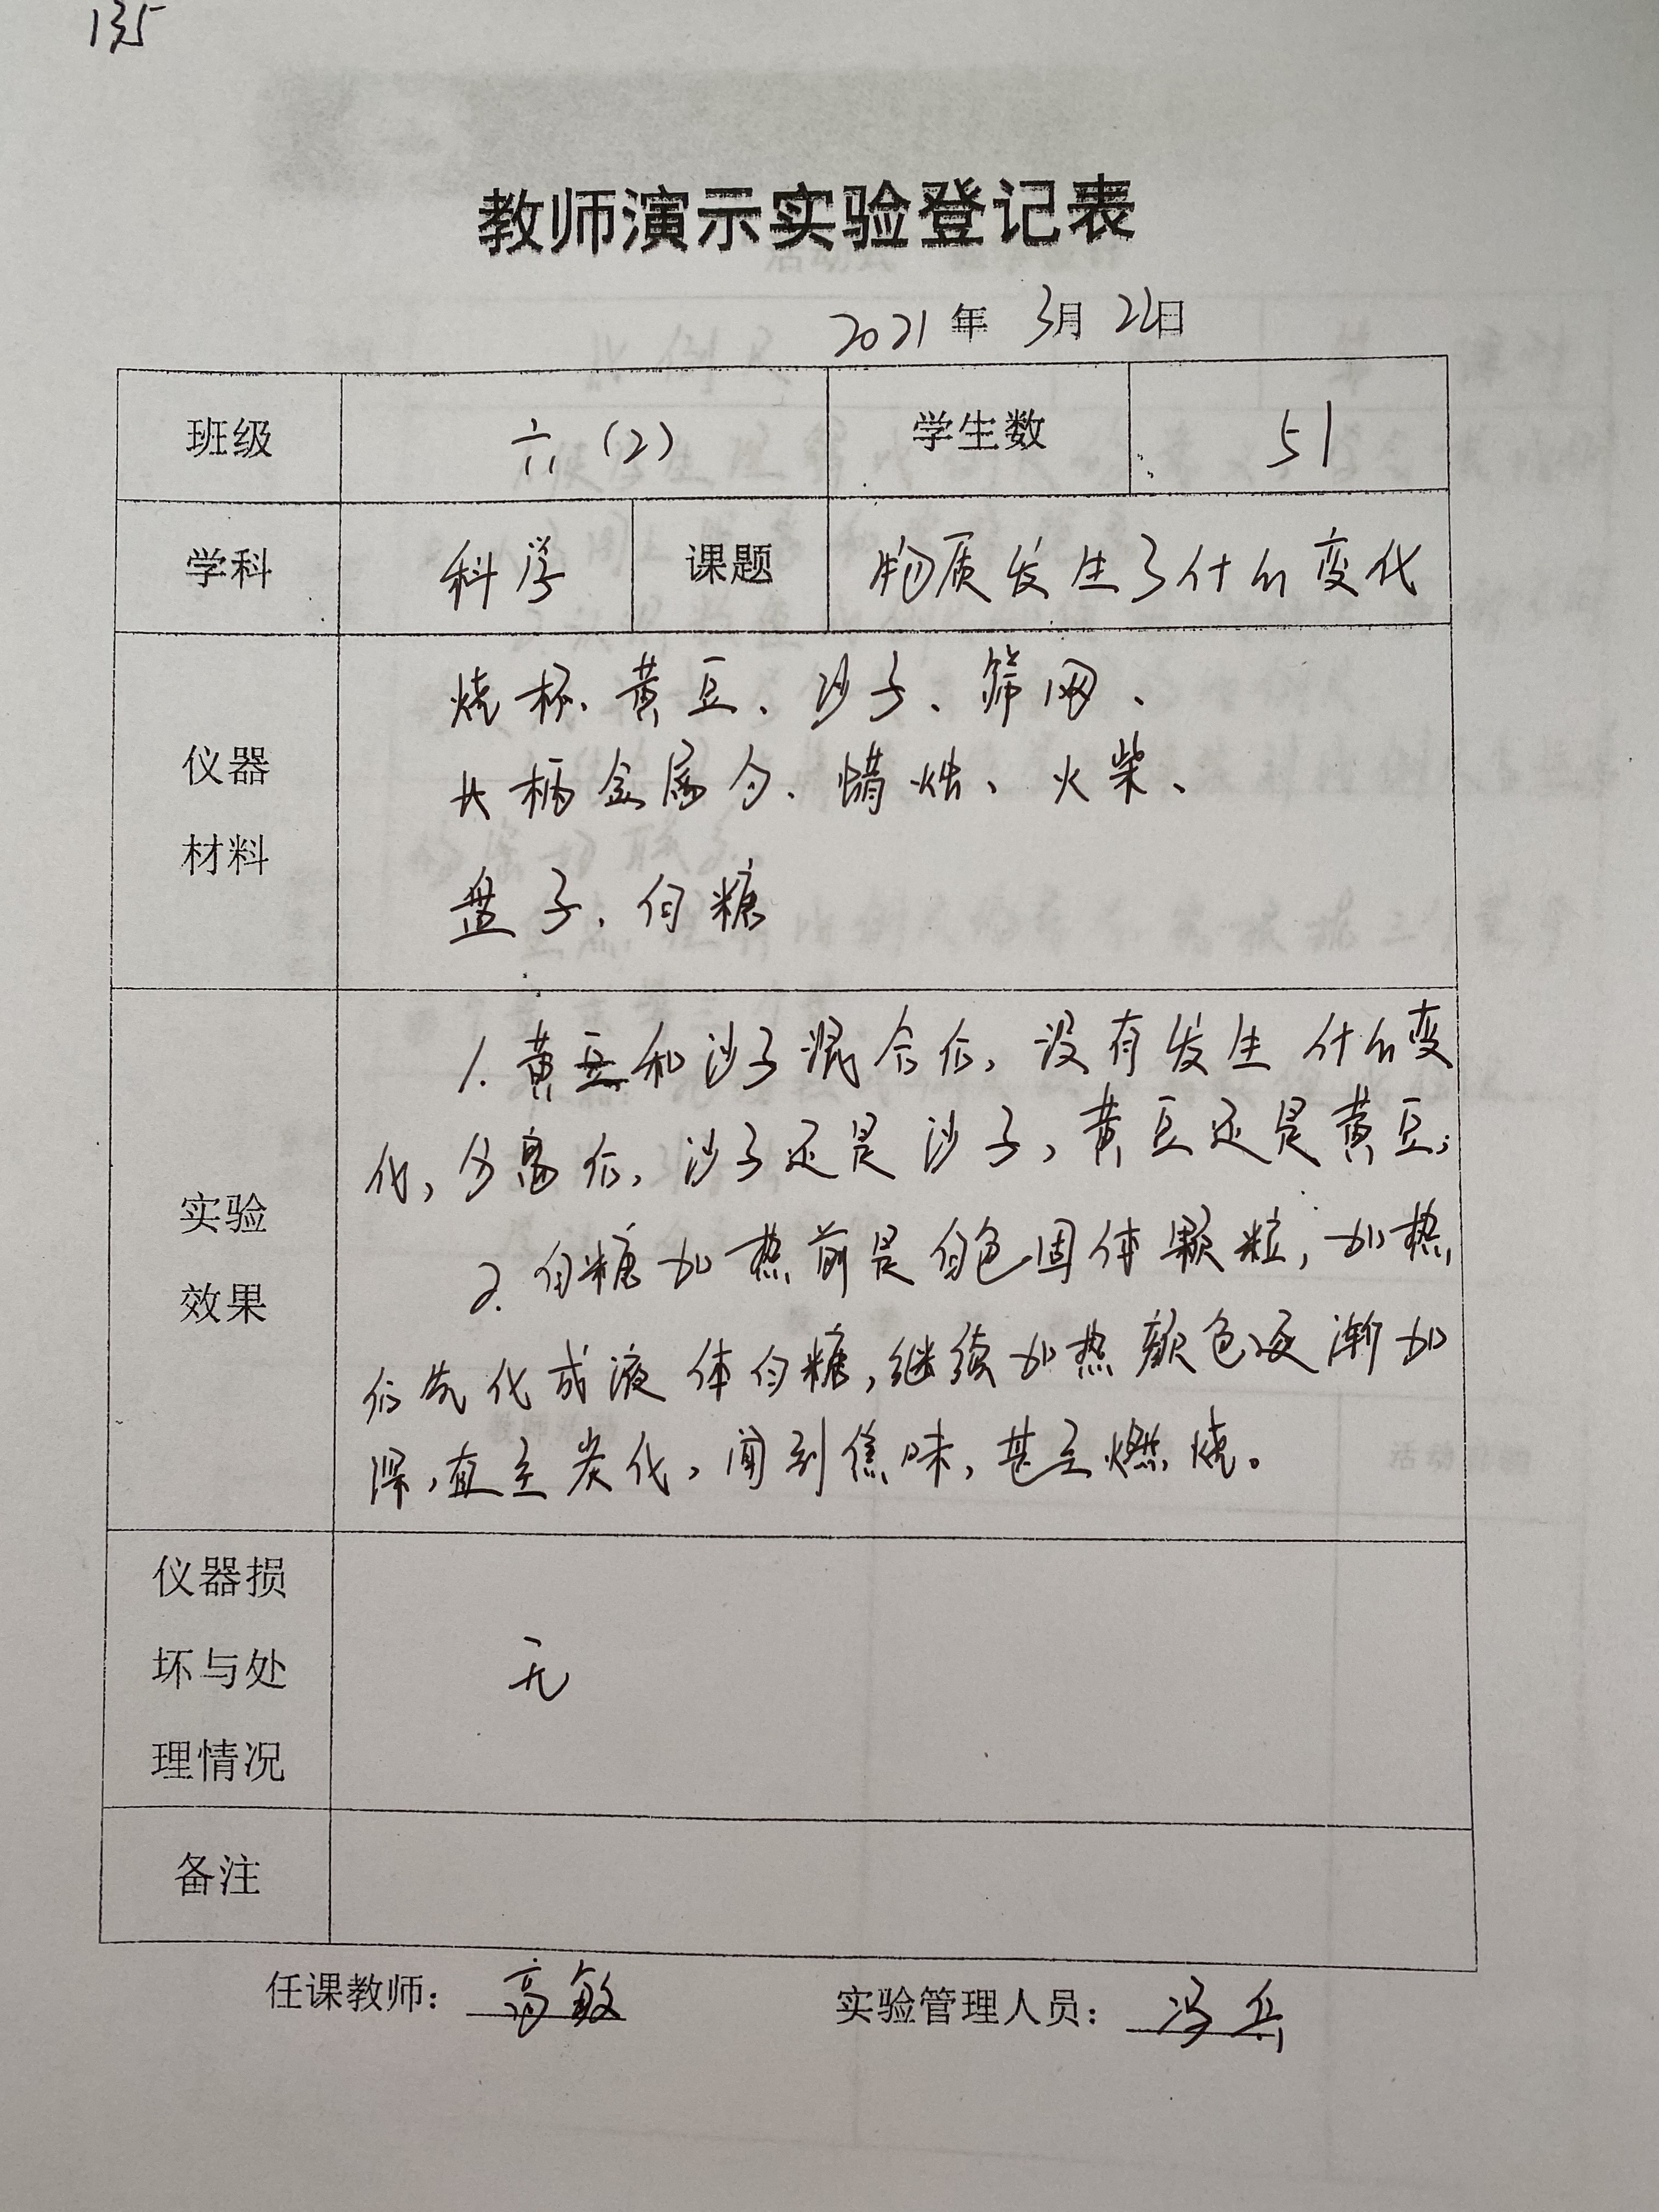 135
教师演示实验登记表
2021年 3月 22日
班级 六(2) 学生数 51
学科 科学 课题 物质发生了什么变化
仪器
材料
烧杯、黄豆、沙子、筛网、
长柄金属勺、蜡烛、火柴、
盘子、白糖
实验
效果
1. 黄豆和沙子混合后,没有发生什么变
化,分离后,沙子还是沙子,黄豆还是黄豆;
2. 白糖加热前是白色固体颗粒,加热
后先化成液体白糖,继续加热颜色逐渐加
深,直至炭化,闻到焦味,甚至燃烧。
仪器损
坏与处
理情况
无
备注
任课教师: 高敏 实验管理人员: 冯兵